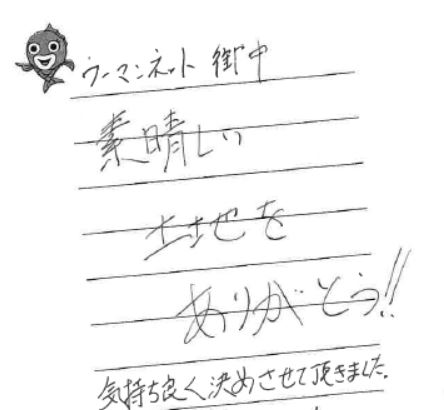 ウーマンネット 御中
素晴しい
土地を
ありがとう!!
気持ち良く決めさせて頂きました。